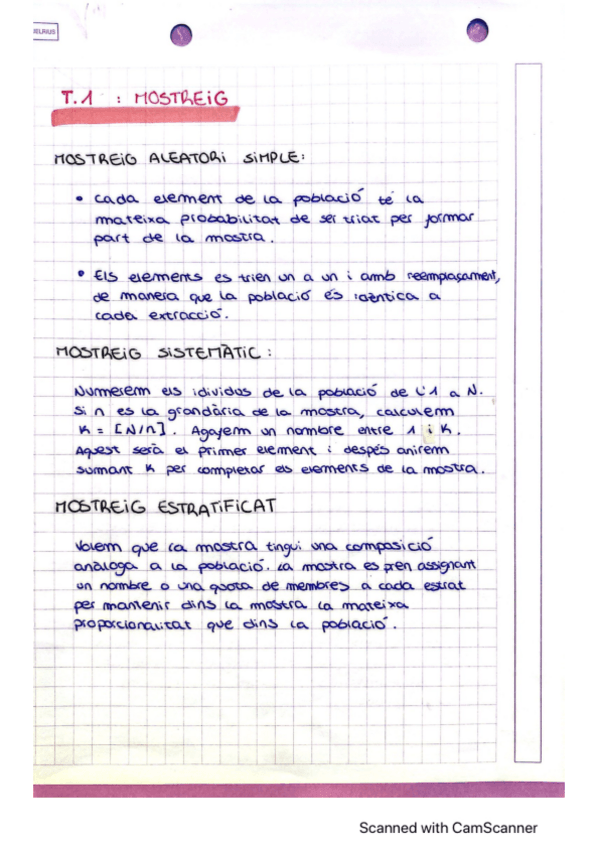 T.1 : MOSTREiG
MOSTREiG ALEATORi SiMPLE:
• Cada element de la població té la
mateixa probabilitat de ser triat per formar
part de la mostra.
• Els elements es trien un a un i amb reemplaçament,
de manera que la població és idèntica a
cada extracció.
MOSTREiG SiSTEMÀTiC :
Numerem els idividus de la població de l'1 a N.
Si n es la grandària de la mostra, calculem
K = [N/n]. Agafem un nombre entre 1 i K.
Aquest serà el primer element i després anirem
sumant K per completar els elements de la mostra.
MOSTREiG ESTRATiFiCAT
Volem que la mostra tingui una composició
anàloga a la població. La mostra es pren assignant
un nombre o una quota de membres a cada estrat
per mantenir dins la mostra la mateixa
proporcionalitat que dins la població.
Scanned with CamScanner